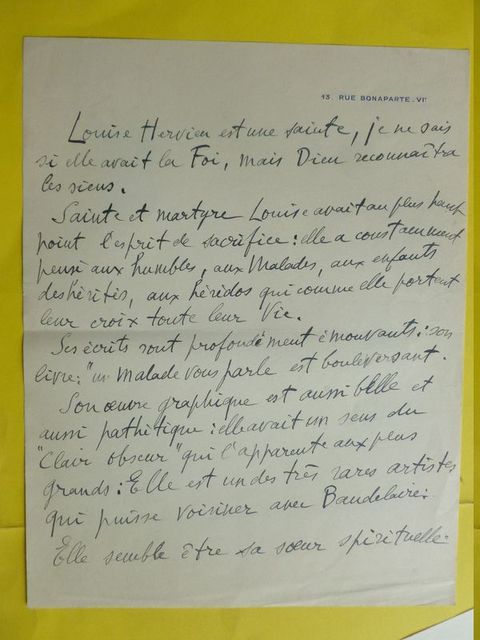 13. RUE BONAPARTE. VIe
Louise Hervieu est une sainte, je ne sais
si elle avait la Foi, mais Dieu reconnaîtra
les siens.
Sainte et martyre Louise avait au plus haut
point l'esprit de sacrifice : elle a constamment
pensé aux humbles, aux malades, aux enfants
deshérités, aux hérédos qui comme elle portent
leur croix toute leur Vie.
Ses écrits sont profondément émouvants : son
livre : "un Malade vous parle est bouleversant.
Son œuvre graphique est aussi belle et
aussi pathétique : elle avait un sens du
"Clair obscur" qui l'apparente aux plus
grands : Elle est un des très rares artistes
qui puisse voisiner avec Baudelaire.
Elle semble être sa sœur spirituelle.